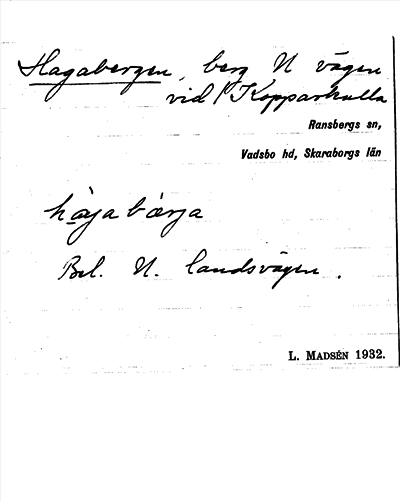 Hagabergen, berg N vägen
vid Kopparkulla
Ransbergs sn,
Vadsbo hd, Skaraborgs län
Bel. N. landsvägen.
L. Madsén 1932.